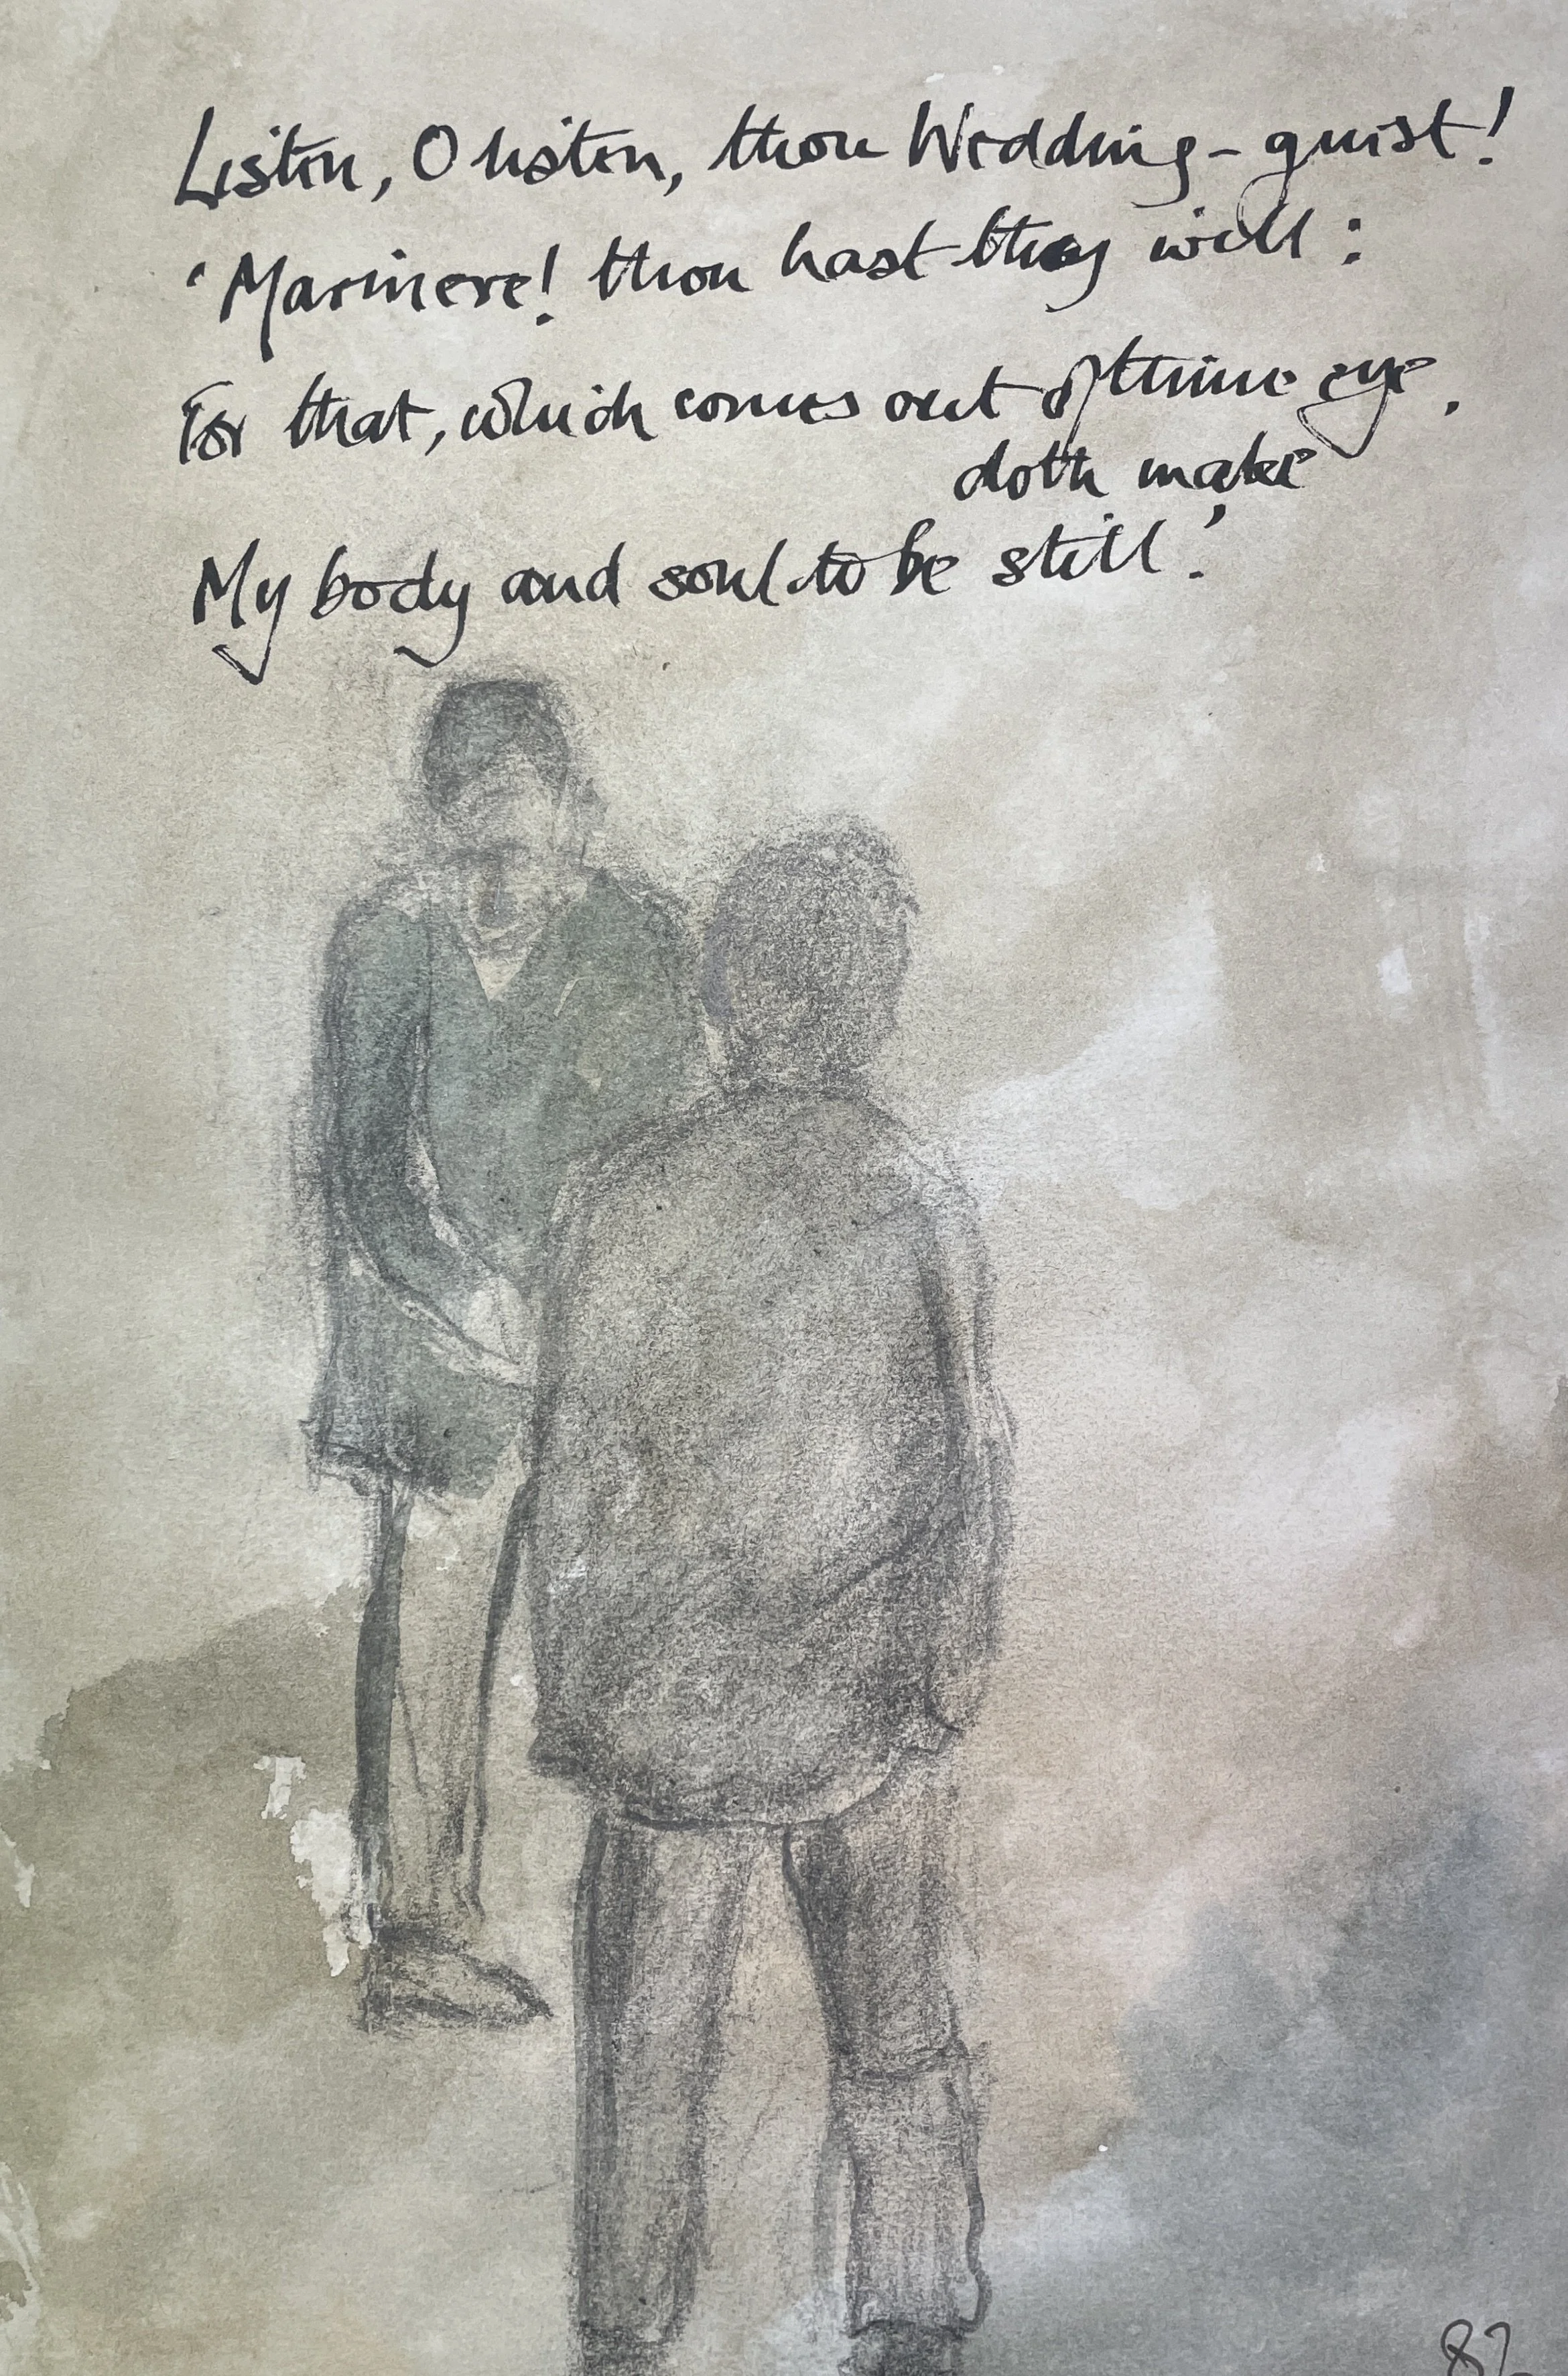 Listen, O listen, thou Wedding-guest!
'Marinere! thou hast thy will:
For that, which comes out of thine eye,
doth make
My body and soul to be still.'
82